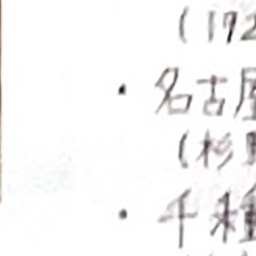 (192
・名古屋
(杉
・千種